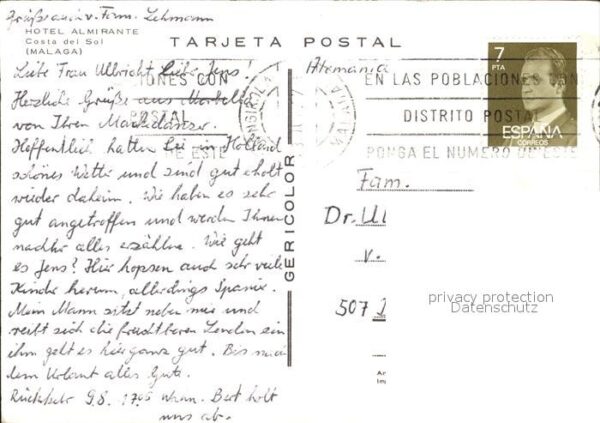 Grüße auch v. Fam. Lehmann
HOTEL ALMIRANTE
Costa del Sol
(MALAGA)
TARJETA POSTAL
Liebe Frau Ulbricht, liebe Jens!
Herzliche Grüße aus Marbella
von Ihren
Hoffentlich hatten Sie in Holland
schönes Wetter und sind gut erholt
wieder daheim. Wir haben es sehr
gut angetroffen und werden Ihnen
nachher alles erzählen. Wie geht
es Jens? Hier hopsen auch sehr viele
Kinder herum, allerdings Spanier.
Mein Mann sitzt neben mir und
reibt sich die Lenden ein
ihm geht es hier ganz gut. Bis nach
dem Urlaub alles Gute
Rückkehr 9.8. 17 Bert holt
uns ab.
GERICOLOR
Alemania
IONES CON
POSTAL
ME ESTE
EN LAS POBLACIONES CON
DISTRITO POSTAL
PONGA EL NUMERO
7
PTA
ESPAÑA
CORREOS
Fam.
Dr. Ul
v.
507
privacy protection
Datenschutz
Ar
Im